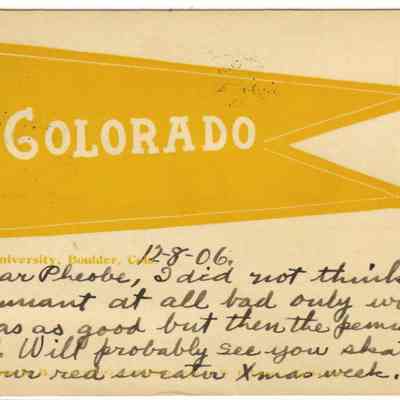 COLORADO
niversity, Boulder, Colo. 12-8-06.
ar Pheobe, I did not think
nnant at all bad only w
as as good but then the penn
Will probably see you ska
our red sweater Xmas week.